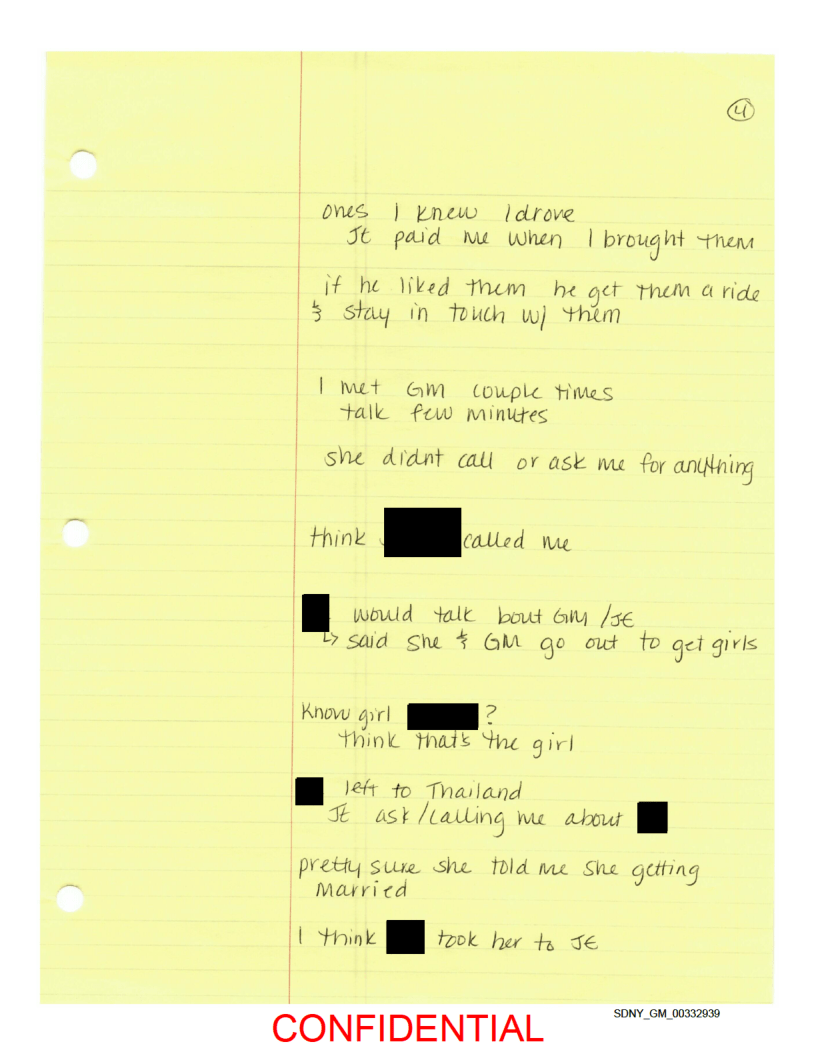 4
ones I knew I drove
JE paid me when I brought them
if he liked them he get them a ride
& stay in touch w/ them
I met GM couple times
talk few minutes
she didnt call or ask me for anything
think called me
would talk bout GM / JE
↳ said she & GM go out to get girls
Know girl ?
think that's the girl
left to Thailand
JE ask/calling me about
pretty sure she told me she getting
married
I think took her to JE
SDNY_GM_00332939
CONFIDENTIAL